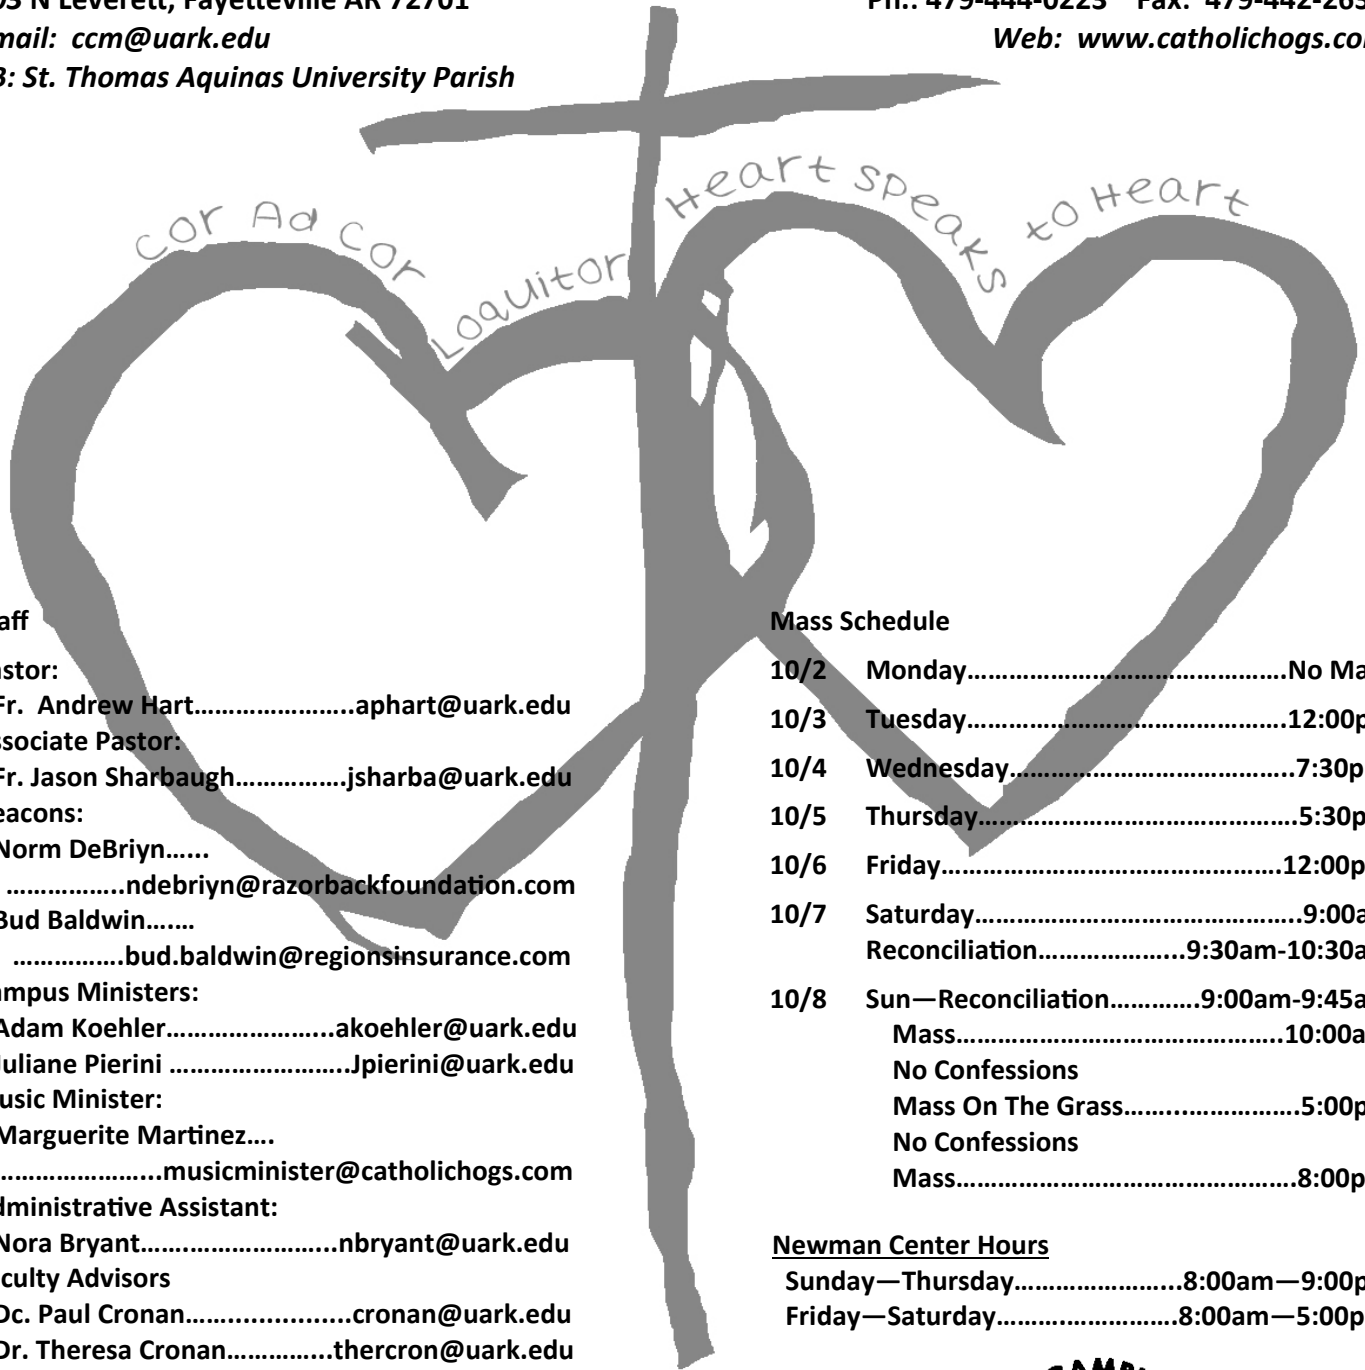 03 N Leverett, Fayetteville AR 72701
Ph.: 479-444-0223 Fax: 479-442-265
mail: ccm@uark.edu
Web: www.catholichogs.co
B: St. Thomas Aquinas University Parish
Cor Ad Cor Loquitor Heart Speaks to Heart
aff
astor:
Fr. Andrew Hart…………………..aphart@uark.edu
ssociate Pastor:
Fr. Jason Sharbaugh…………….jsharba@uark.edu
eacons:
Norm DeBriyn…...
……………..ndebriyn@razorbackfoundation.com
Bud Baldwin…....
…………….bud.baldwin@regionsinsurance.com
ampus Ministers:
Adam Koehler…………………...akoehler@uark.edu
Juliane Pierini ……………………..Jpierini@uark.edu
usic Minister:
Marguerite Martinez….
…………………...musicminister@catholichogs.com
dministrative Assistant:
Nora Bryant…….………………...nbryant@uark.edu
culty Advisors
Dc. Paul Cronan……................cronan@uark.edu
Dr. Theresa Cronan…………...thercron@uark.edu
Mass Schedule
10/2 Monday………………………………….No Ma
10/3 Tuesday………………………………….12:00p
10/4 Wednesday……………………………..7:30p
10/5 Thursday………………………………….5:30p
10/6 Friday…………………………………….12:00p
10/7 Saturday…………………………………..9:00a
Reconciliation………………...9:30am-10:30a
10/8 Sun—Reconciliation……….9:00am-9:45a
Mass…………………………………..10:00a
No Confessions
Mass On The Grass……..…………….5:00p
No Confessions
Mass…………………………………….8:00p
Newman Center Hours
Sunday—Thursday…………………...8:00am—9:00p
Friday—Saturday…………………….8:00am—5:00p